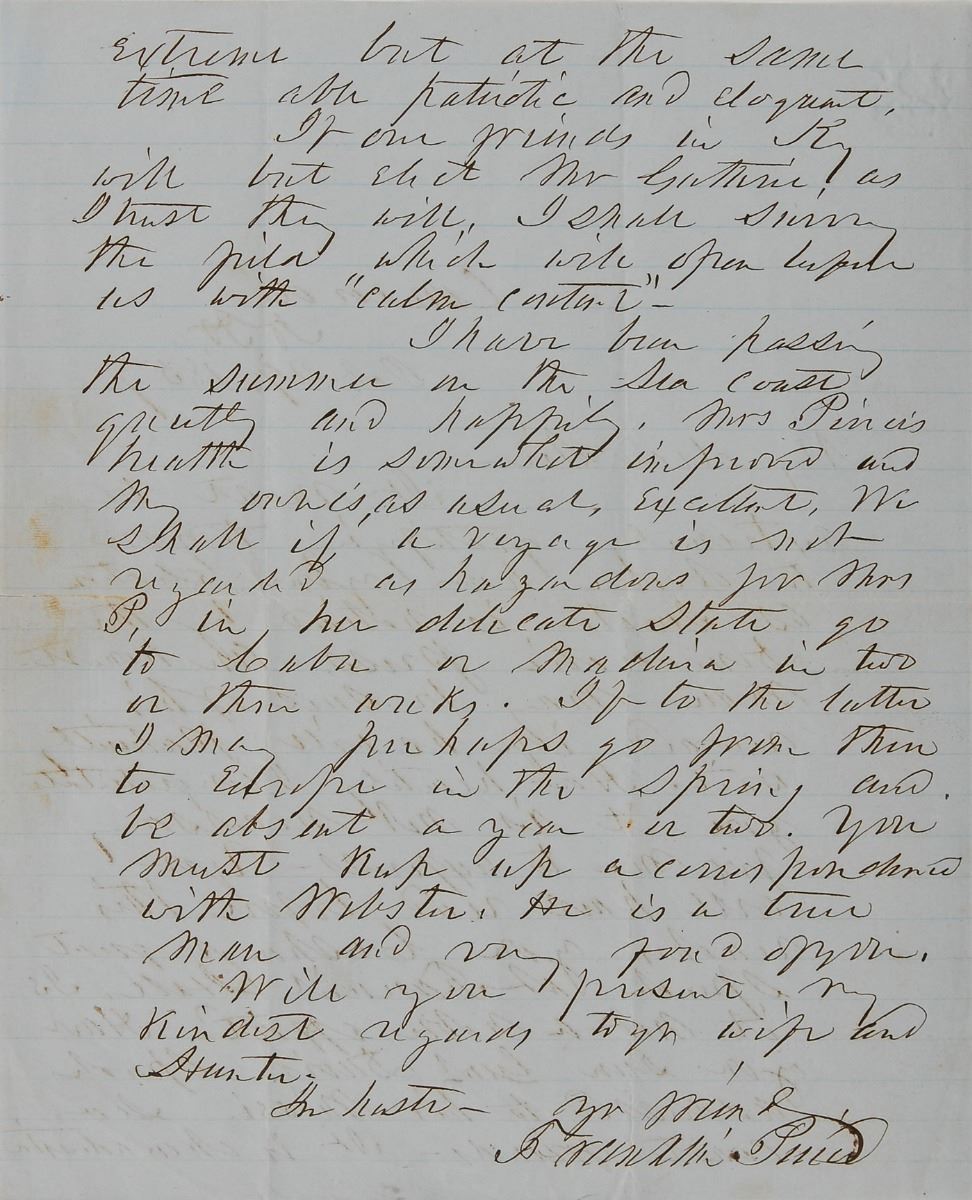 extreme but at the same
time able patriotic and eloquent.
If our friends in Ky
will but elect Mr Guthrie, as
I trust they will, I shall survey
the field which will open before
us with "calm content" -
I have been passing
the summer on the Sea coast
quietly and happily. Mrs Pierces
health is somewhat improved and
my own is, as usual, excellent. We
shall if a voyage is not
regarded as hazardous for Mrs
P. in her delicate State go
to Cuba or Madeira in two
or three weeks. If to the latter
I may perhaps go from there
to Europe in the Spring and
be absent a year or two. You
must keep up a correspondence
with Webster. He is a true
man and very fond of you.
Will you present my
kindest regards to yr wife and
Hunter.
In haste - yr friend
Franklin Pierce